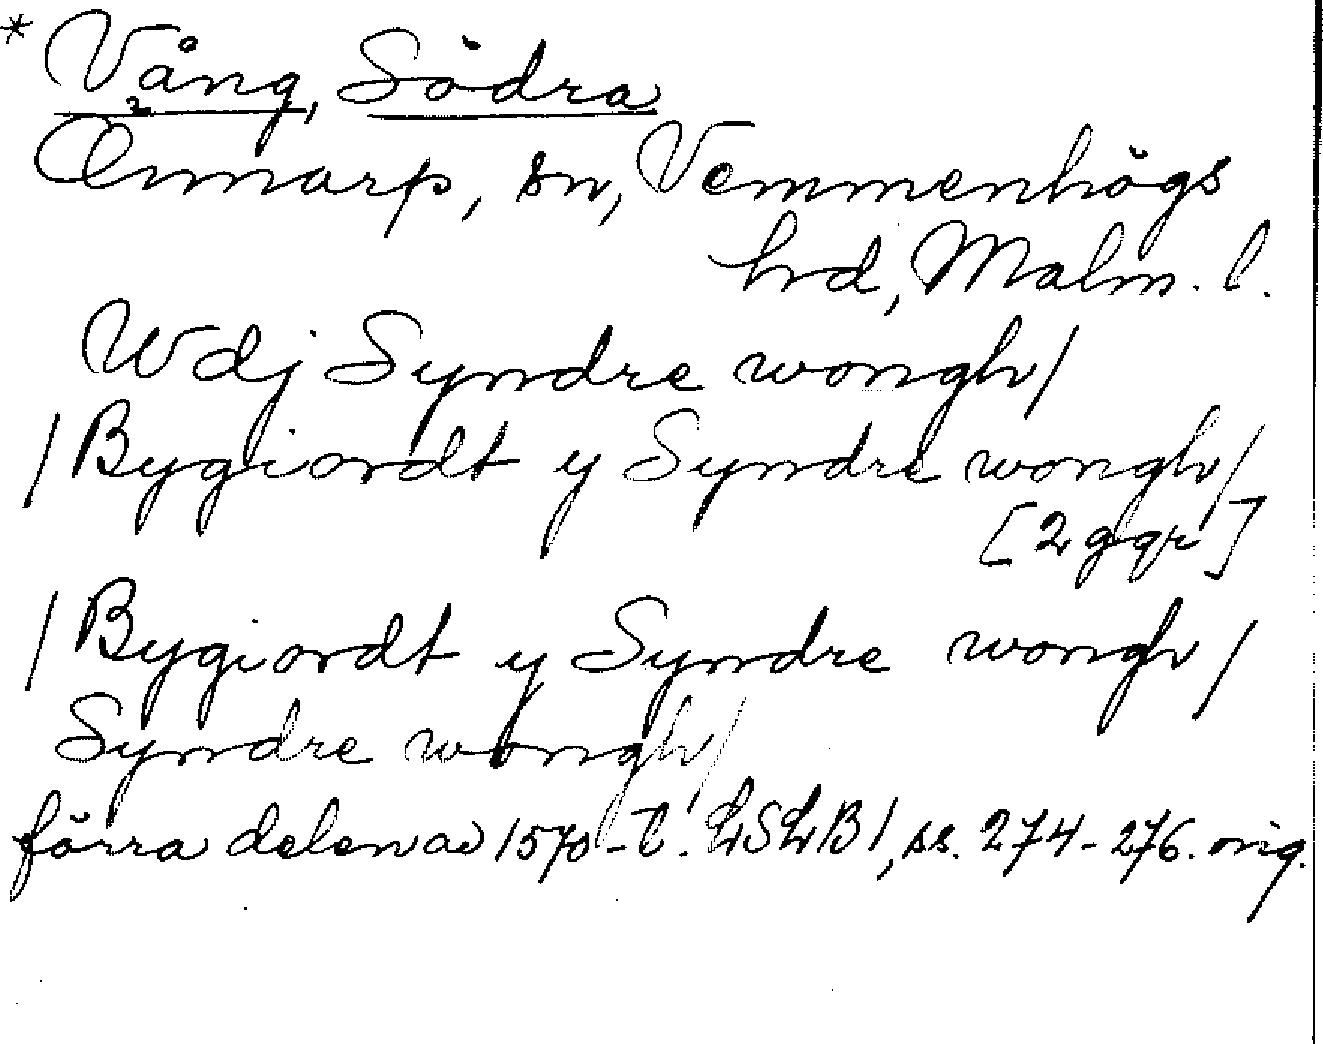 * Vång, Södra
Önnarp, sn, Vemmenhögs
hrd, Malm. l.
Wdj Syndre wongh/
/Bygiordt y Syndre wongh/
[2 ggr]
/Bygiordt y Syndre wongh/
Syndre wongh/
förra delen av 1570-t. LSLB1, ss. 274-276. orig.